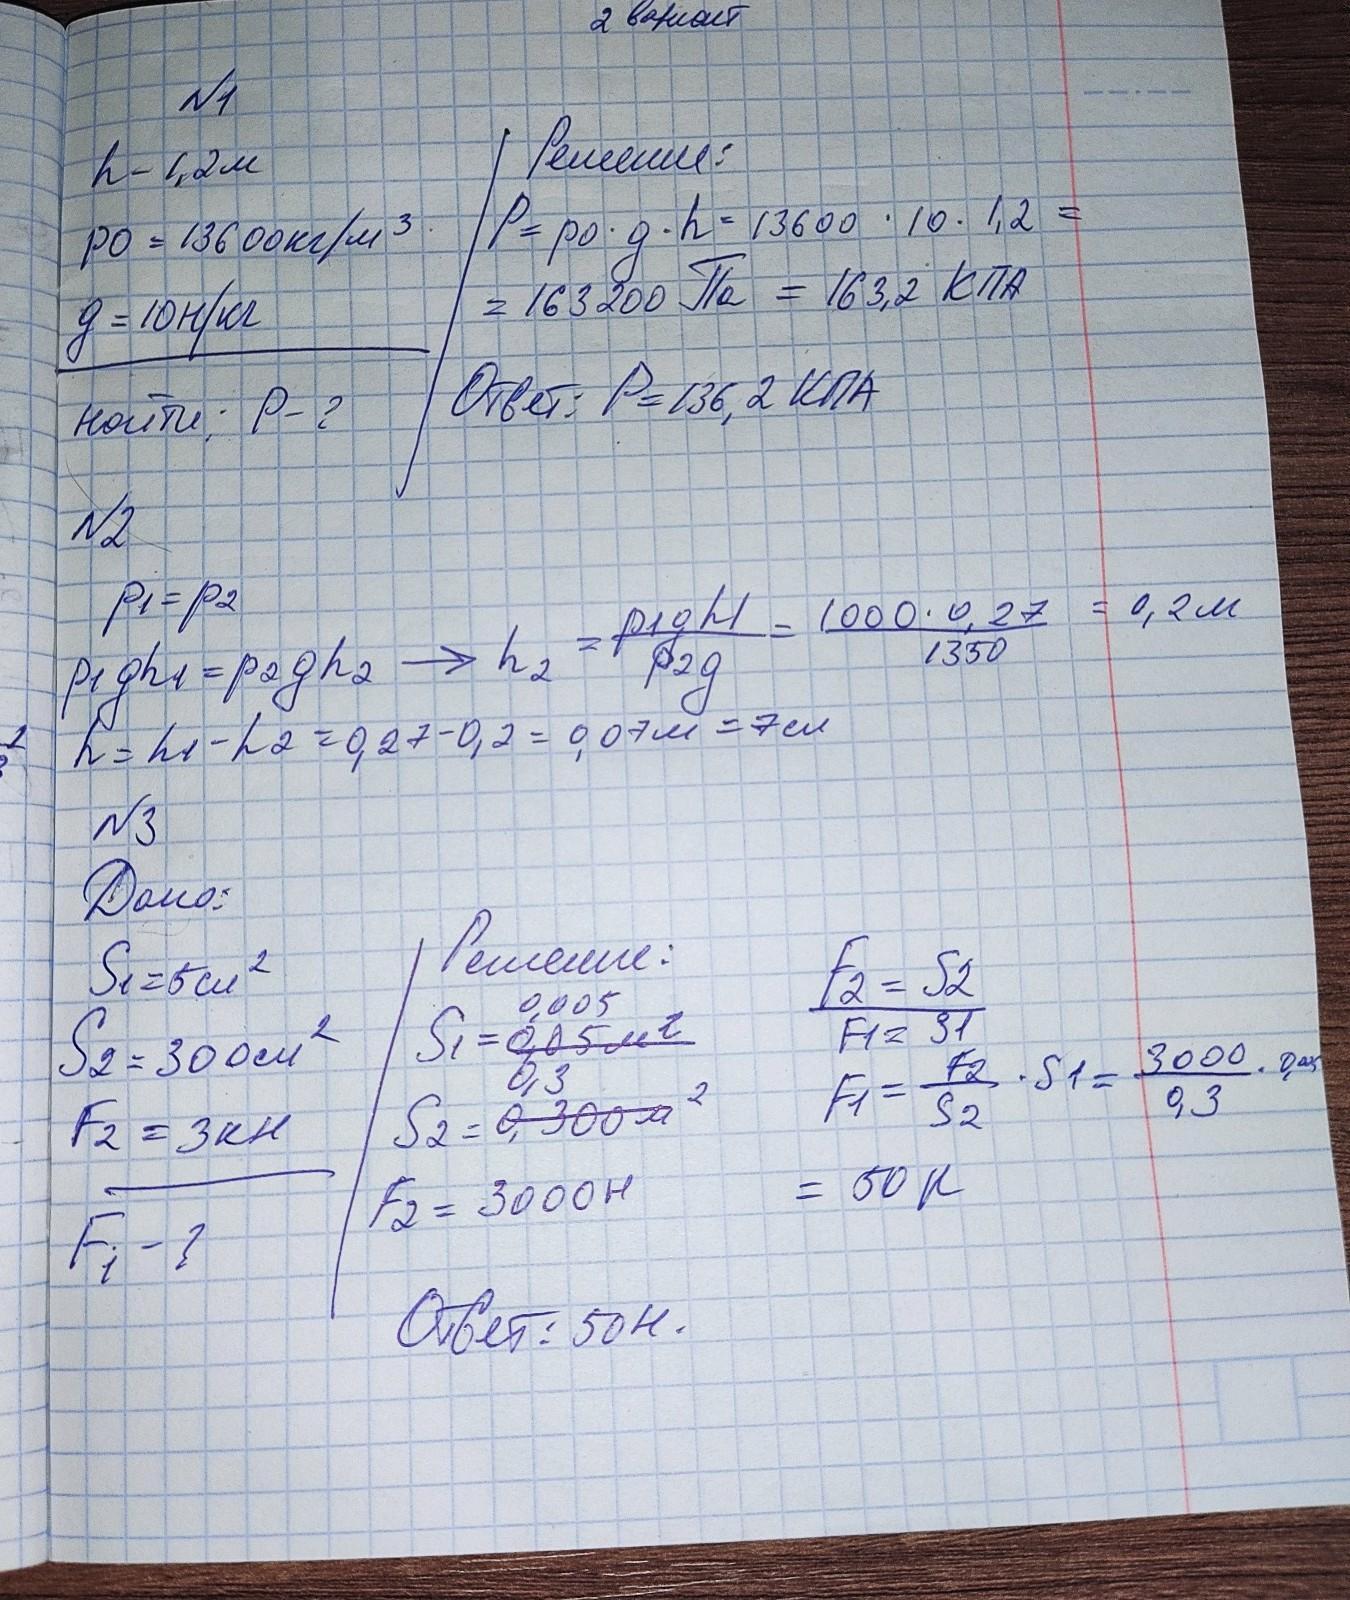 2 вариант
№1
h - 1,2м
p0 = 13600кг/м³
g = 10н/кг
найти: P - ?
Решение:
P = p0 · g · h = 13600 · 10 · 1,2 =
= 163200 Па = 163,2 КПА
Ответ: P = 136,2 КПА
№2
p1 = p2
p1gh1 = p2gh2 → h2 = p1gh1/p2g = 1000 · 0,27/1350 = 0,2м
h = h1 - h2 = 0,27 - 0,2 = 0,07м = 7см
№3
Дано:
S1 = 5см²
S2 = 300см²
F2 = 3кН
F1 - ?
Решение:
0,005
S1 = 0,05м²
0,3
S2 = 0,300м²
F2 = 3000Н
F2 = S2
F1 = S1
F1 = F2/S2 · S1 = 3000/0,3 · 0,005
= 50 Н
Ответ: 50Н.